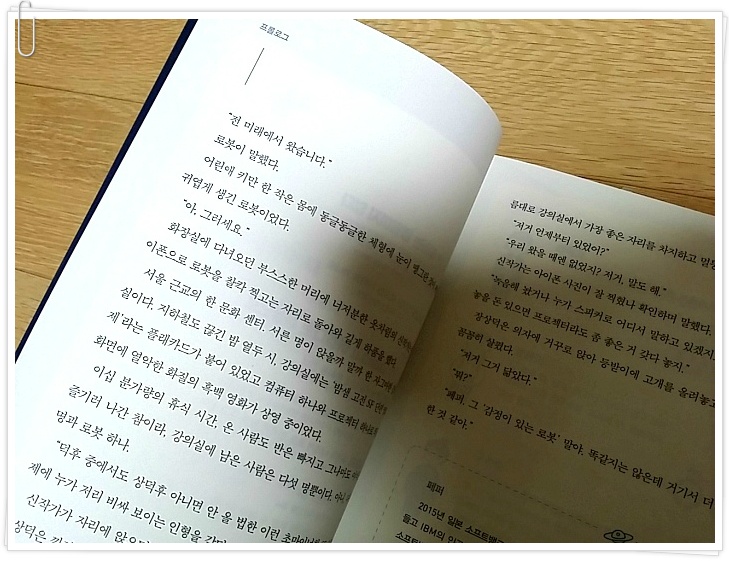 프롤로그
"전 미래에서 왔습니다."
로봇이 말했다.
어린애 키만 한 작은 몸에 동글동글한 체형에 눈이
귀엽게 생긴 로봇이었다.
"아, 그러세요."
화장실에 다녀오던 부스스한 머리에 너저분한 옷차림의
이폰으로 로봇을 찰칵 찍고는 자리로 돌아와 길게 하품을 했다.
서울 근교의 한 문화 센터. 서른 명이 앉을까 말까 한
실이다. 지하철도 끊긴 밤 열두 시, 강의실에는 '밤샘 고전 SF
제'라는 플래카드가 붙어 있었고 컴퓨터 하나와 프로젝터 하나로
화면에 열악한 화질의 흑백 영화가 상영 중이었다.
이십 분가량의 휴식 시간, 온 사람도 반은 빠지고
즐기러 나간 참이라, 강의실에 남은 사람은 다섯 명뿐이다.
명과 로봇 하나.
"덕후 중에서도 상덕후 아니면 안 올 법한 이런
제에 누가 저리 비싸 보이는 인형을
신작가가 자리에
상덕은
름대로 강의실에서 가장 좋은 자리를 차지하고
"저거 언제부터 있었어?"
"우리 왔을 때엔 없었지? 저거, 말도 해."
신작가는 아이폰 사진이 잘 찍혔나 확인하며 말했다.
"녹음해 놨거나 누가 스피커로 어디서 말하고 있겠지.
놓을 돈 있으면 프로젝터라도 좀 좋은 거 갖다 놓지."
장상덕은 의자에 거꾸로 앉아 등받이에 고개를 올려놓고
꼼꼼히 살폈다.
"저거 그거 닮았다."
"뭐?"
"페퍼. 그 '감정이 있는 로봇' 말야. 똑같지는 않은데 거기서 더
한 것 같아."
페퍼
2015년 일본 소프트뱅크
들고 IBM의